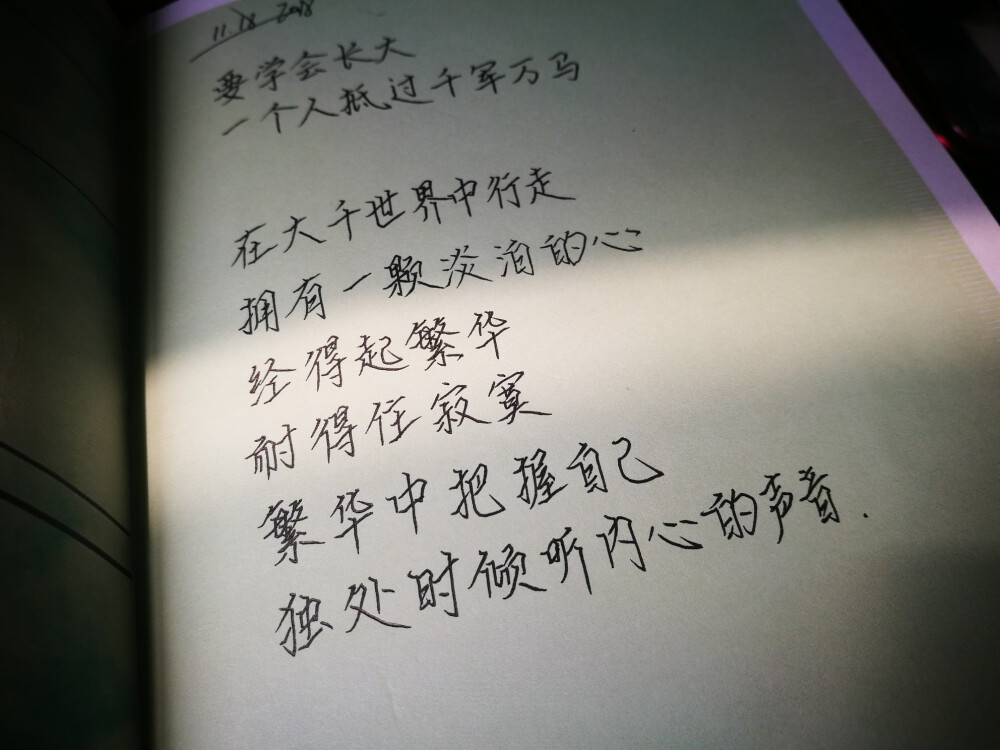 11.18 2018
要学会长大
一个人抵过千军万马
在大千世界中行走
拥有一颗淡泊的心
经得起繁华
耐得住寂寞
繁华中把握自己
独处时倾听内心的声音.